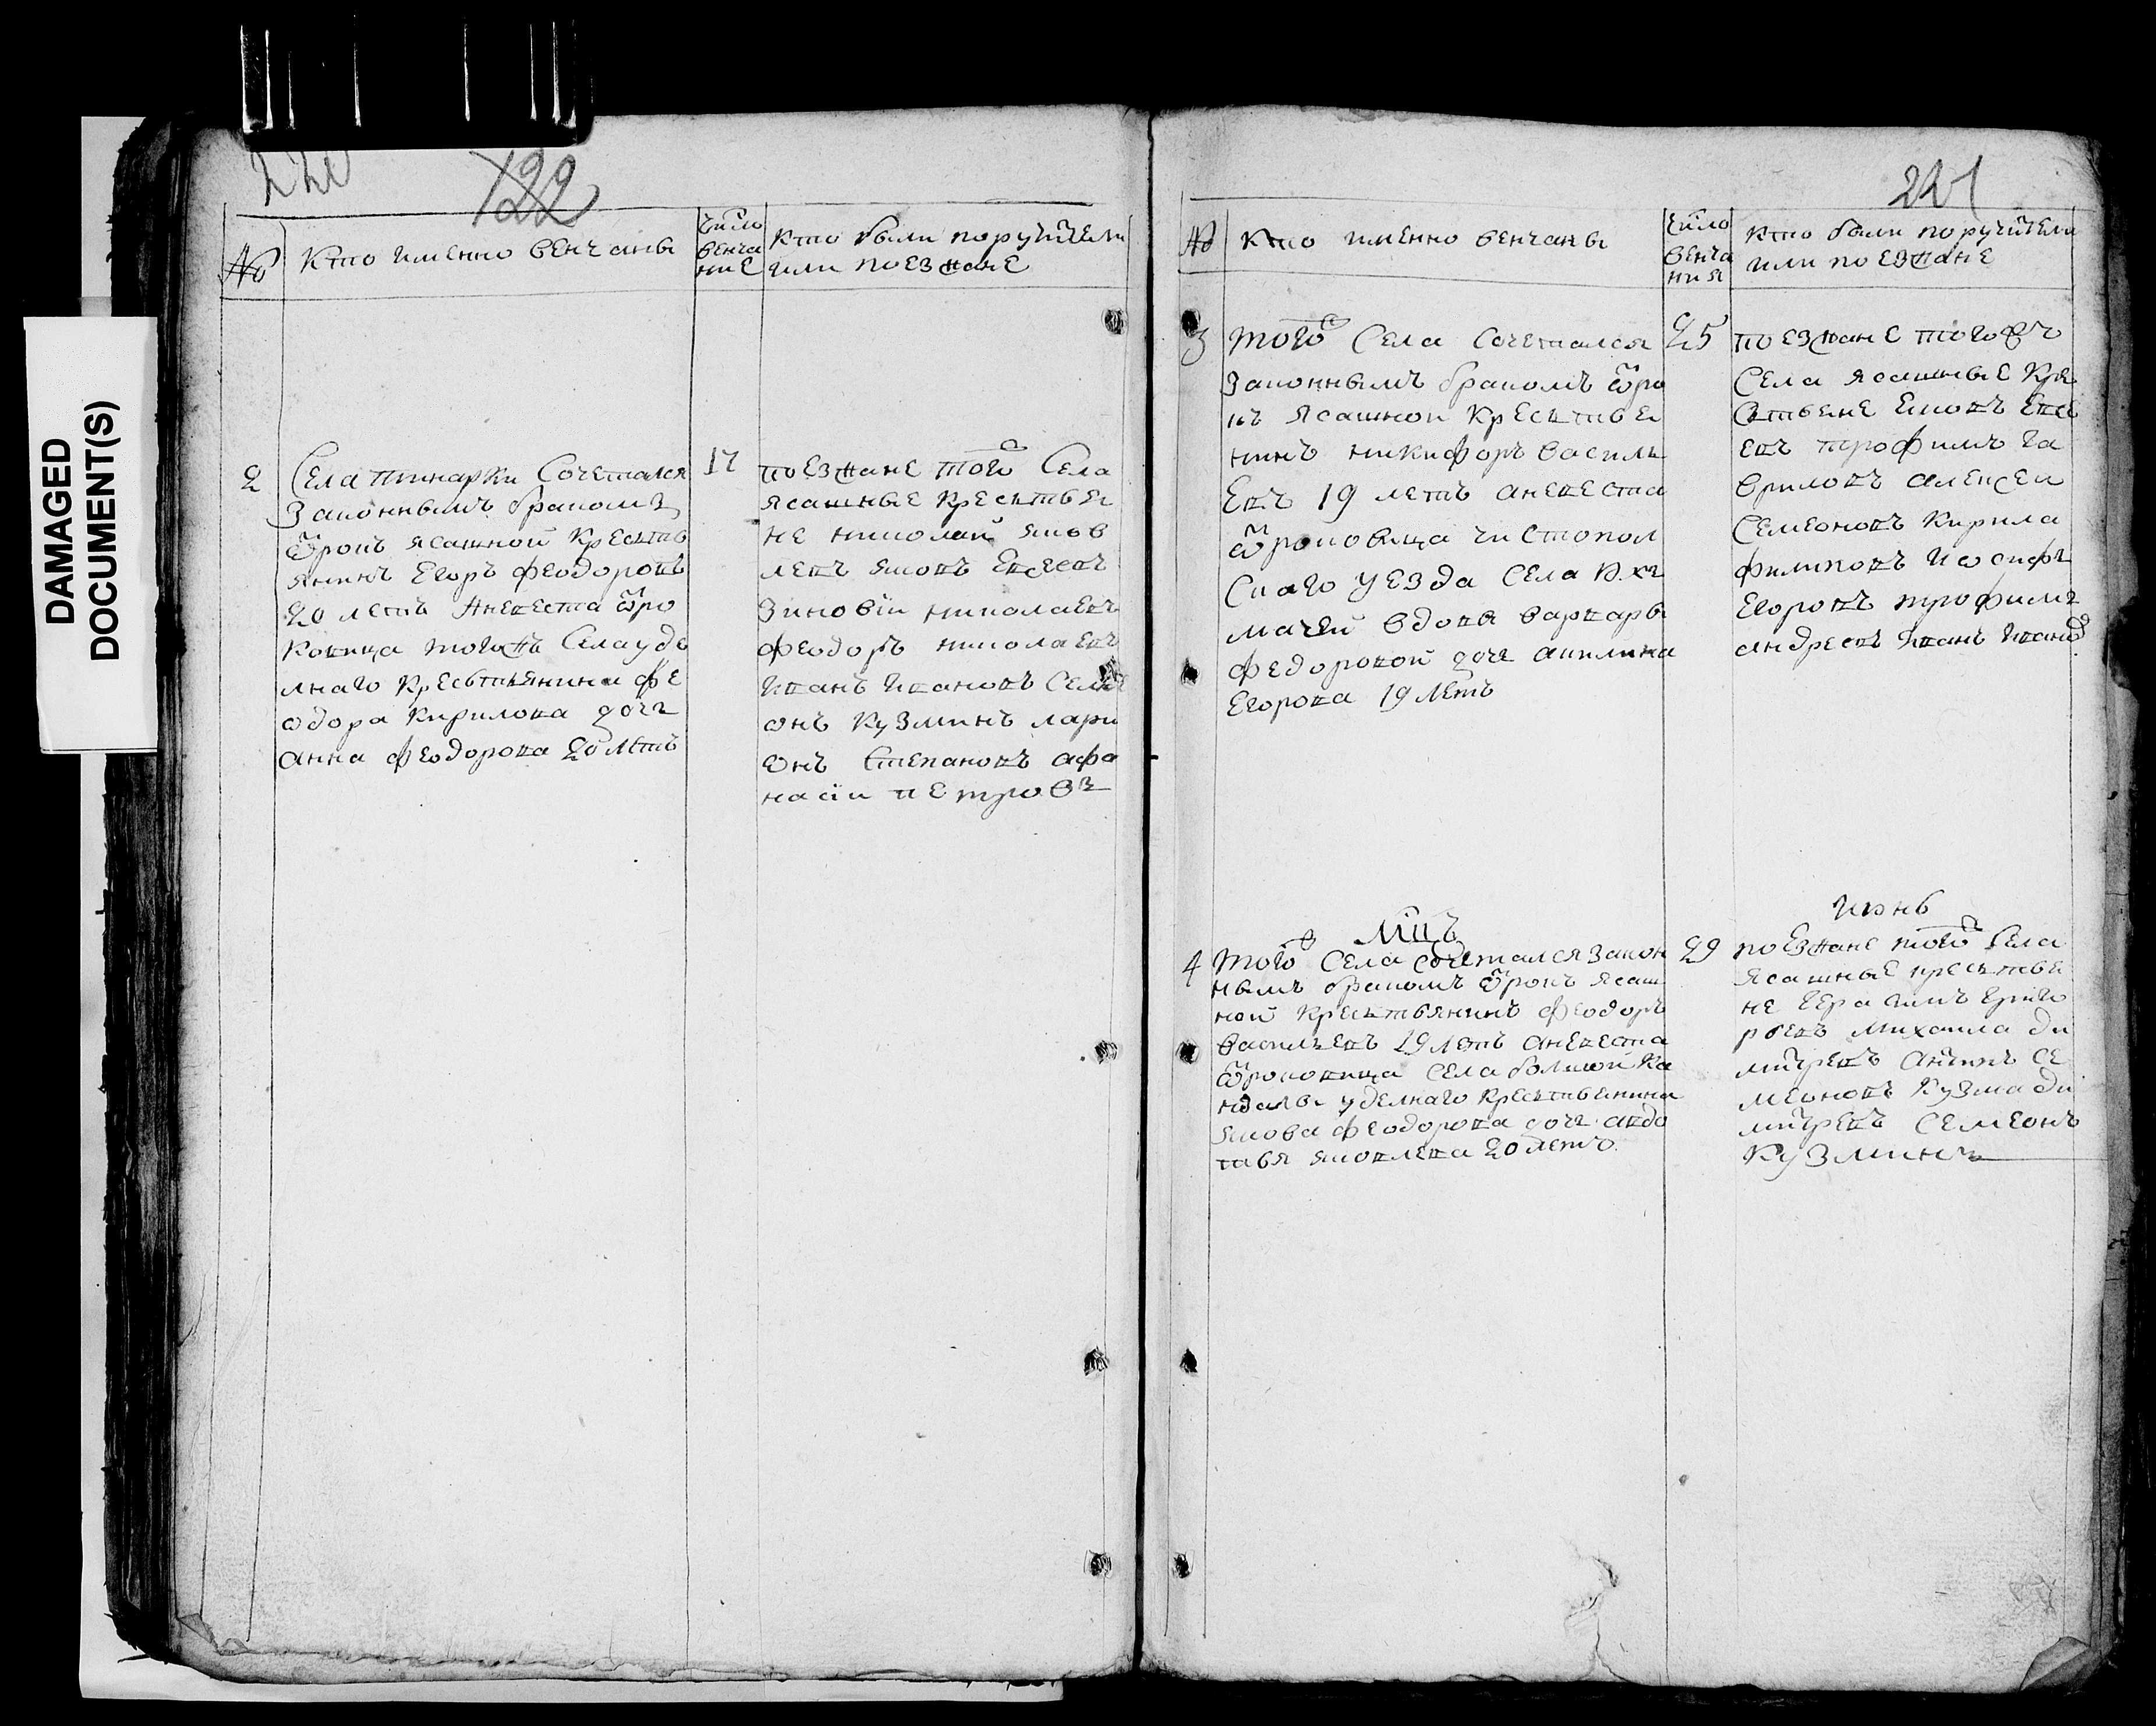 DAMAGED
DOCUMENT(S)
220
122
№
Кто именно венчаны
Число
венча
ние
Кто были поручители
или поезжане
2
Села пинарки Сочетался
Законнымъ бракомъ
Отрокъ ясашной Крестья
янинъ Егоръ Феодоровъ
20 летъ Аневеста отро
ковица тогожъ Села удѣ
лнаго Крестьянина Фе
одора Кирилова дочь
анна Феодорова 20 летъ
17
поезжане того Села
ясашные Крестья
не николай яков
левъ яковъ Евсеевъ
Зиновiи николаевъ
Феодоръ николаевъ
Иванъ Ивановъ Семи
онъ Кузминъ лари
онъ Степановъ афа
насiи петровъ
221
№
Кто именно венчаны
Число
венча
ния
Кто были поручители
или поезжане
3
того Села Сочетался
Законнымъ бракомъ отро
къ ясашной Крестья
нинъ никифоръ василь
Евъ 19 летъ аневеста
отроковица чистопол
скаго уезда Села
мачей вдовы варвары
федоровой дочь акилина
Егорова 19 летъ
25
поезжане тогожъ
Села ясашные Кре
стьяне Яковъ Евсе
евъ трофимъ га
вриловъ алексеи
Семеоновъ Кирила
филиповъ Иосифъ
Егоровъ трофимъ
андреевъ Иванъ Ивановъ
Мцъ
июнь
4
того Села сочетался закон
нымъ бракомъ отрокъ ясаш
ной Крестьянинъ Феодоръ
Васильевъ 19 летъ аневеста
отроковица Села большой Ка
ндалы уделнаго Крестьянина
якова Феодорова дочь авдо
тья яковлева 20 летъ
29
поезжане того Села
ясашные крестья
не Герасимъ Григо
рьевъ Михаила Ди
митревъ антипъ Се
меоновъ Кузма Ди
митревъ Семеонъ
Кузминъ